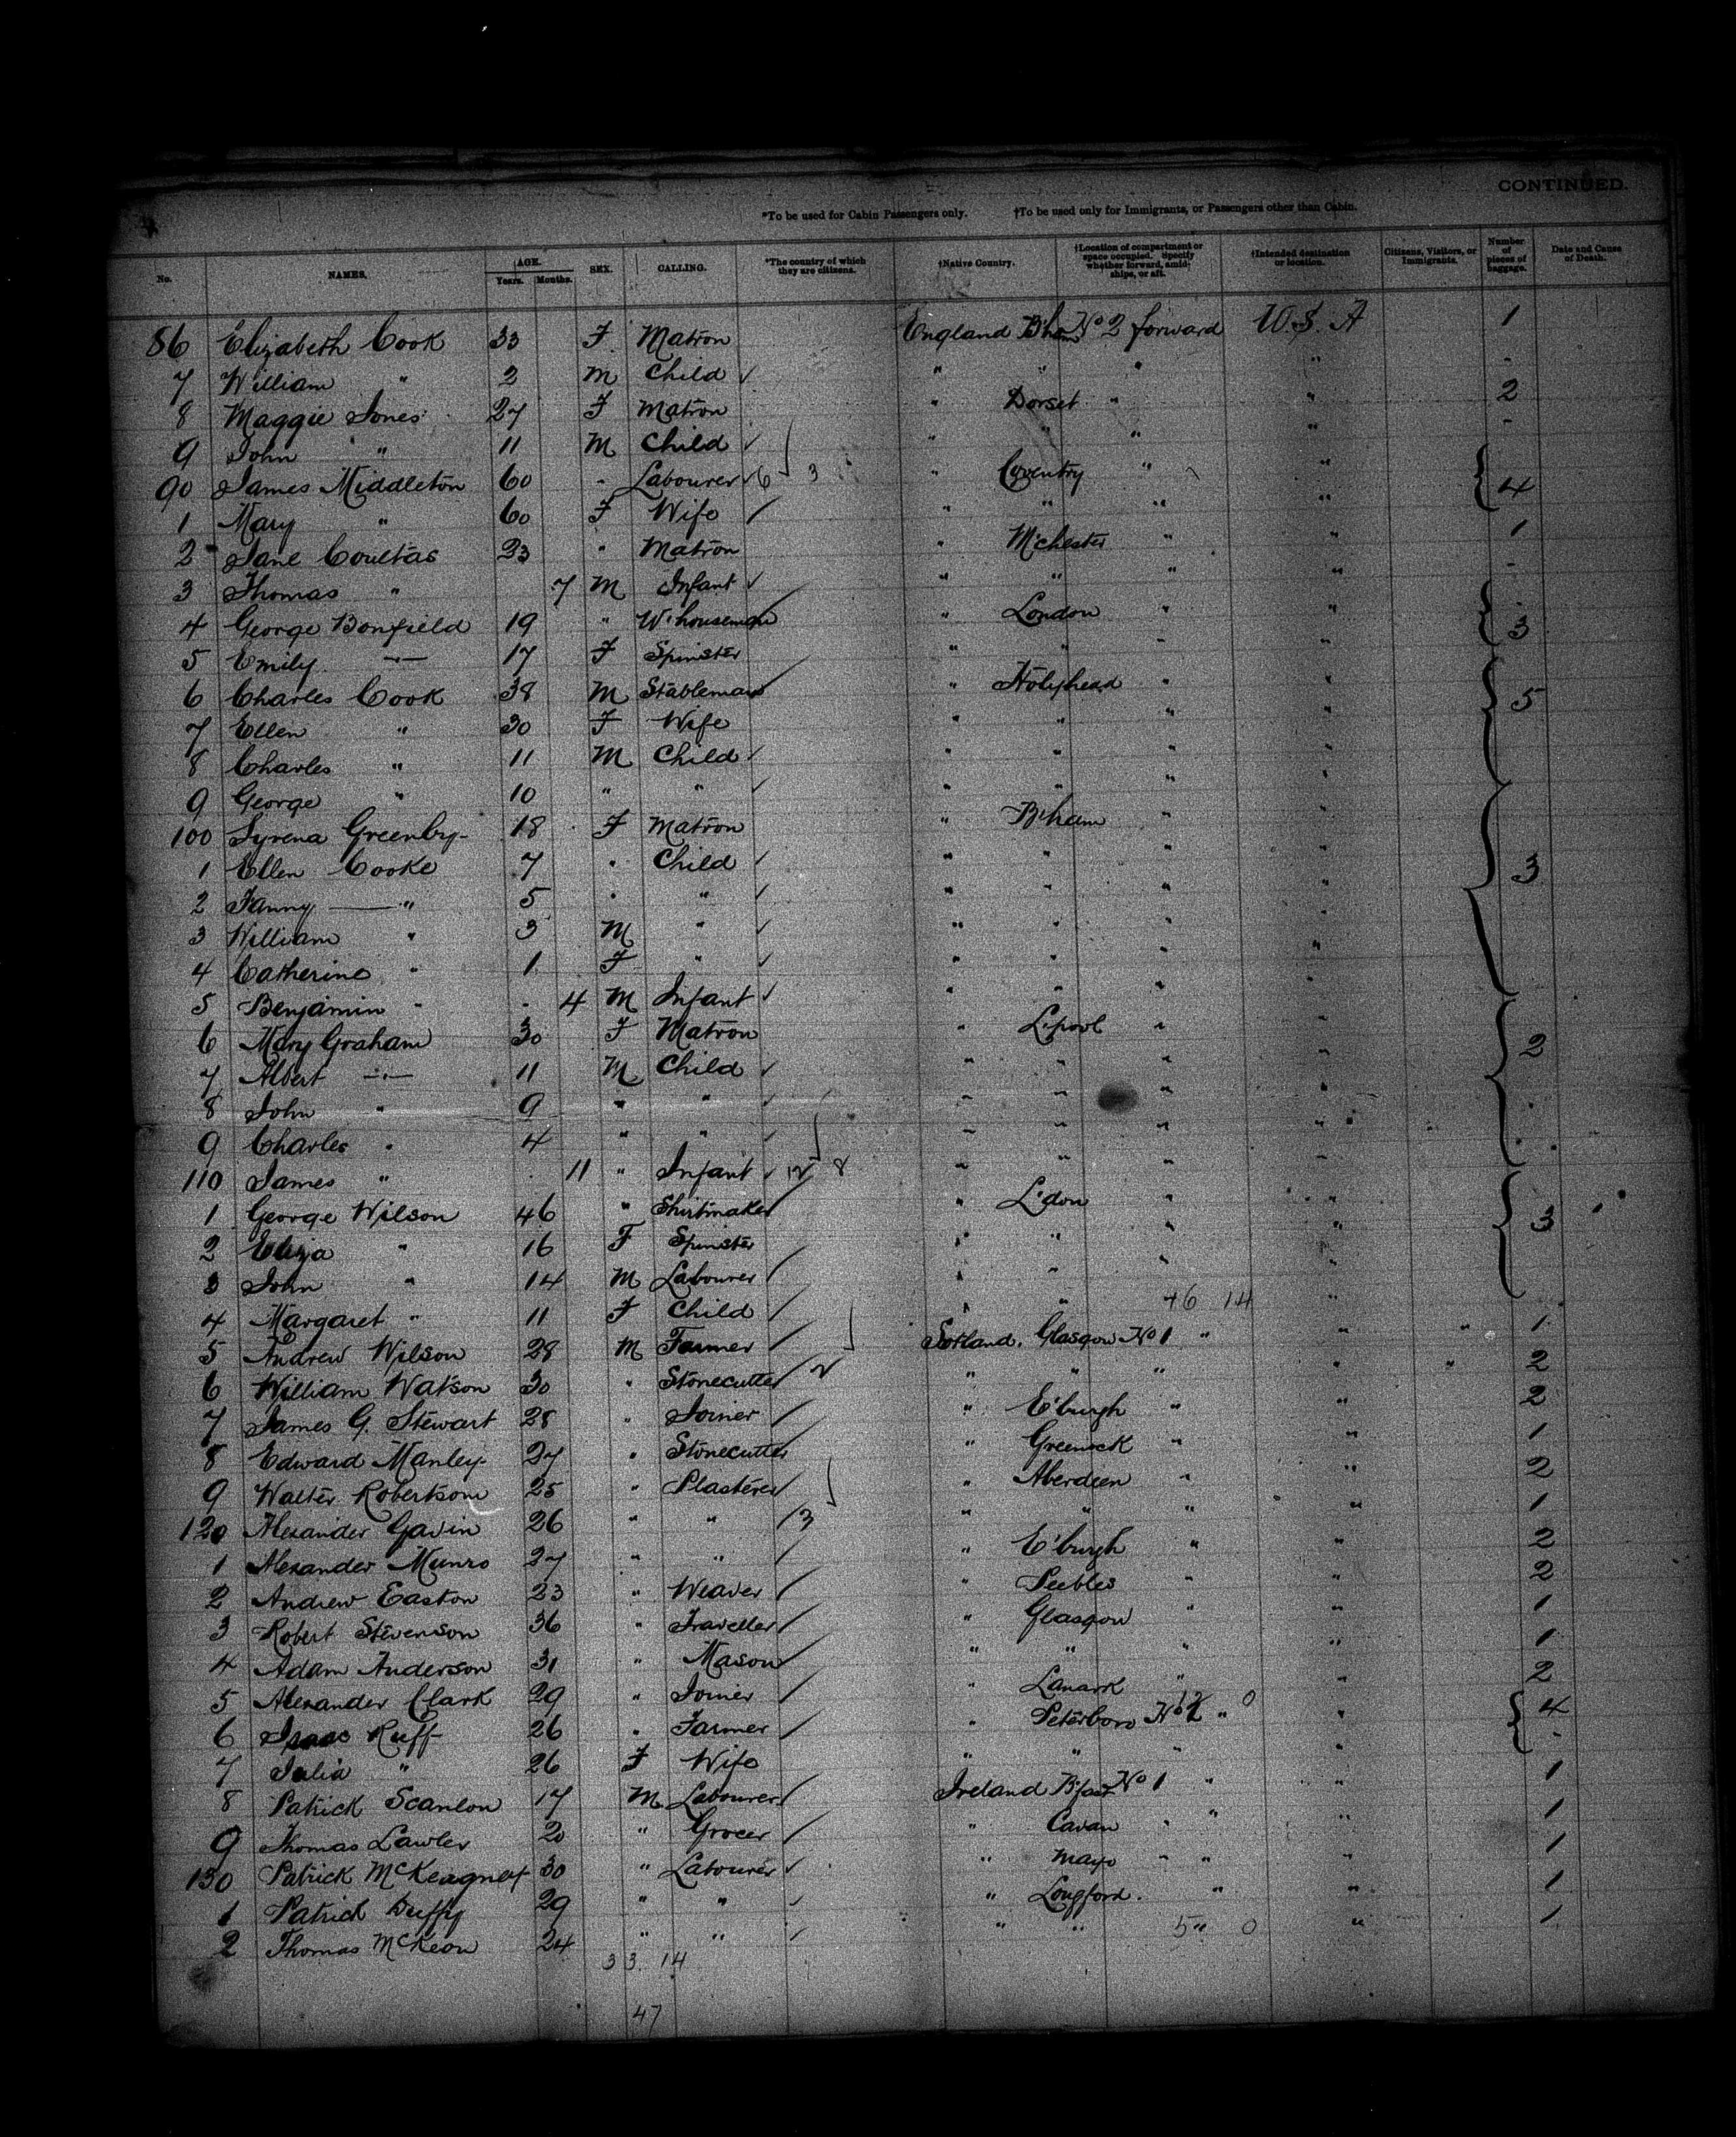 CONTINUED.
*To be used for Cabin Passengers only. †To be used only for Immigrants, or Passengers other than Cabin.
No. NAMES. AGE. Years. Months. SEX. CALLING. *The country of which they are citizens. †Native Country. †Location of compartment or space occupied. Specify whether forward, amidships, or aft. †Intended destination or location. Citizens, Visitors, or Immigrants. Number of pieces of baggage. Date and Cause of Death.
86 Elizabeth Cook 33 F Matron England B'ham No 2 forward U.S.A 1
7 William " 2 M Child " " " " -
8 Maggie Jones 27 F Matron " Dorset " " 2
9 John " 11 M Child " " " " -
90 James Middleton 60 - Labourer 6 3 " Coventry " " 4
1 Mary " 60 F Wife " " " "
2 Jane Coultas 23 " Matron " M'chester " " 1
3 Thomas " 7 M Infant " " " " -
4 George Bonfield 19 " W'houseman " London " " 3
5 Emily " 17 F Spinster " " " "
6 Charles Cook 38 M Stableman " Holyhead " " 5
7 Ellen " 30 F Wife " " " "
8 Charles " 11 M Child " " " "
9 George " 10 " " " " " "
100 Syrena Greenby 18 F Matron " B'ham " "
1 Ellen Cooke 7 " Child " " " " 3
2 Fanny " 5 " " " " " "
3 William " 3 M " " " " "
4 Catherine " 1 F " " " " "
5 Benjamin " 4 M Infant " " " "
6 Mary Graham 30 F Matron " L'pool " " 2
7 Albert " 11 M Child " " " "
8 John " 9 " " " " " "
9 Charles " 4 " " " " " "
110 James " 11 " Infant 12 8 " " " "
1 George Wilson 46 " Shirtmaker " L'don " " 3
2 Eliza " 16 F Spinster " " " "
3 John " 14 M Labourer " " " "
4 Margaret " 11 F Child " " 46 14 "
5 Andrew Wilson 28 M Farmer Scotland. Glasgow No 1 " " " 1
6 William Watson 30 " Stonecutter 2 " " " " " 2
7 James G. Stewart 28 " Joiner " E'burgh " " 2
8 Edward Manley 27 " Stonecutter " Greenock " " 1
9 Walter Robertson 25 " Plasterer " Aberdeen " " 2
120 Alexander Gavin 26 " " 3 " " " " 1
1 Alexander Munro 27 " " " E'burgh " " 2
2 Andrew Easton 23 " Weaver " Peebles " " 2
3 Robert Stevenson 36 " Traveller " Glasgow " " 1
4 Adam Anderson 31 " Mason " " " " 1
5 Alexander Clark 29 " Joiner " Lanark " " 2
6 Isaac Ruff 26 " Farmer " Peterboro No 2 " 12 0 " 4
7 Julia " 26 F Wife " " " " -
8 Patrick Scanlon 17 M Labourer Ireland B'fast No 1 " " 1
9 Thomas Lawler 20 " Grocer " Cavan " " 1
130 Patrick McKeagney 30 " Labourer " Mayo " " " 1
1 Patrick Duffy 29 " " " Longford. " " 1
2 Thomas McKeon 24 " " " " 5 " 0 " 1
33 14
47